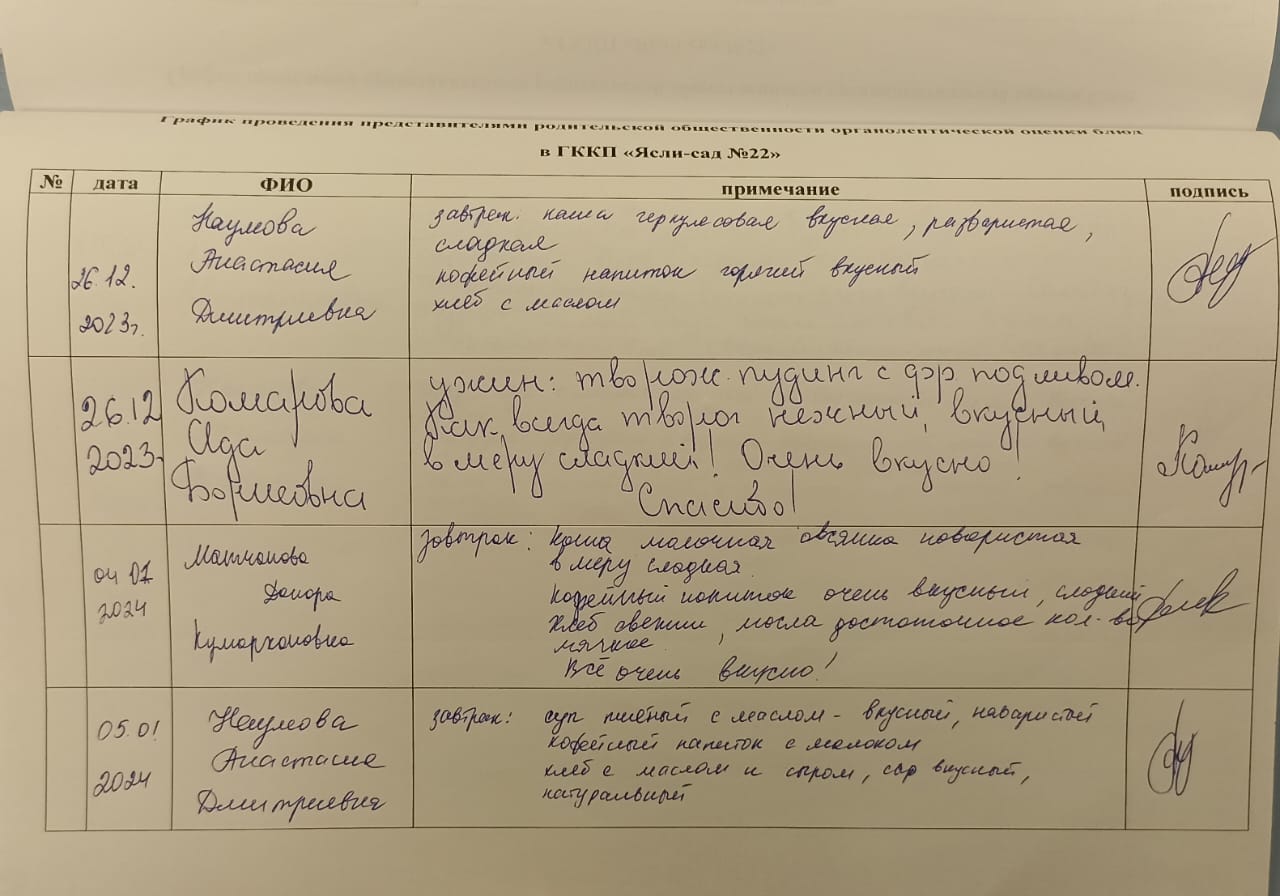 График проведения представителями родительской общественности органолептической оценки блюд
в ГККП «Ясли-сад №22»
№ дата ФИО примечание подпись
26.12.
2023г.
Наумова
Анастасия
Дмитриевна
завтрак: каша геркулесовая вкусная, разваристая,
сладкая
кофейный напиток горячий вкусный
хлеб с маслом
26.12
2023г
Комарова
Ада
Борисовна
ужин: творож. пудинг с фр подливом.
Как всегда творог нежный, вкусный,
в меру сладкий! Очень вкусно!
Спасибо!
Комар
04 01
2024
Матчанова
Данора
Кумархановна
завтрак: каша молочная овсянка наваристая
в меру сладкая
кофейный напиток очень вкусный, сладкий
хлеб свежий, масла достаточное кол-во
мягкое
Всё очень вкусно!
05.01
2024
Наумова
Анастасия
Дмитриевна
завтрак: суп пшённый с маслом - вкусный, наваристый
кофейный напиток с молоком
хлеб с маслом и сыром, сыр вкусный,
натуральный